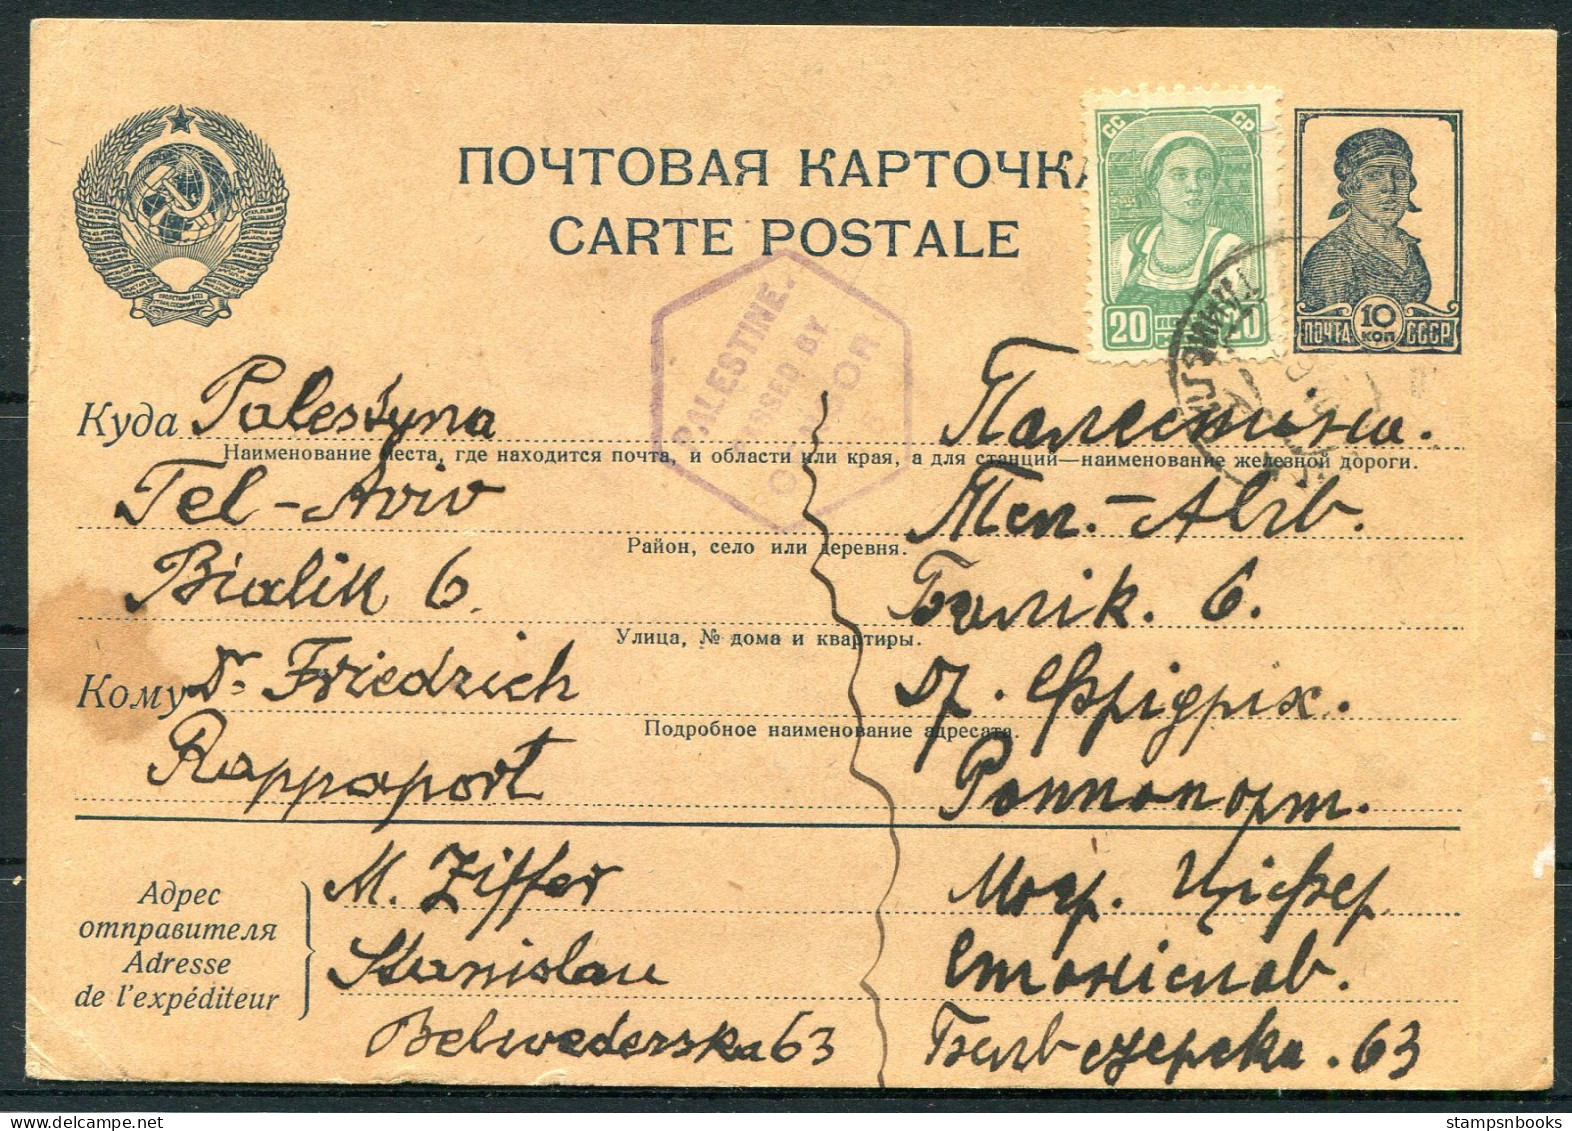 ПОЧТОВАЯ КАРТОЧКА
CARTE POSTALE
СС СР
20 20
10
КОП
ПОЧТА СССР
PALESTINE.
PASSED BY
CENSOR
Куда Palestyna
Палестіна.
Наименование места, где находится почта, и области или края, а для станций—наименование железной дороги.
Tel-Aviv
Тел.-Авів.
Район, село или деревня.
Bialik 6.
Бялік. 6.
Улица, № дома и квартиры.
Кому Dr. Friedrich
др. Фрідріх.
Подробное наименование адресата.
Rappaport
Раппапорт.
Адрес
отправителя
Adresse
de l'expéditeur
M. Ziffer
Ціффер
Stanislau
Станіслав.
Belwederska 63
Бельведерска. 63
stampsnbooks